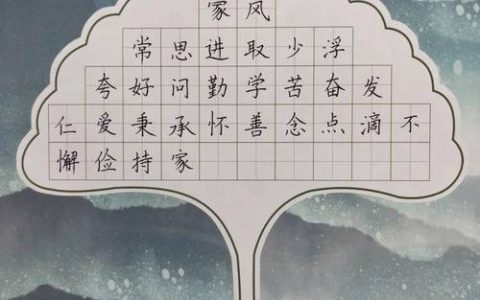 家风
常思进取少浮
夸好问勤学苦奋发
仁爱秉承怀善念点滴不
懈俭持家